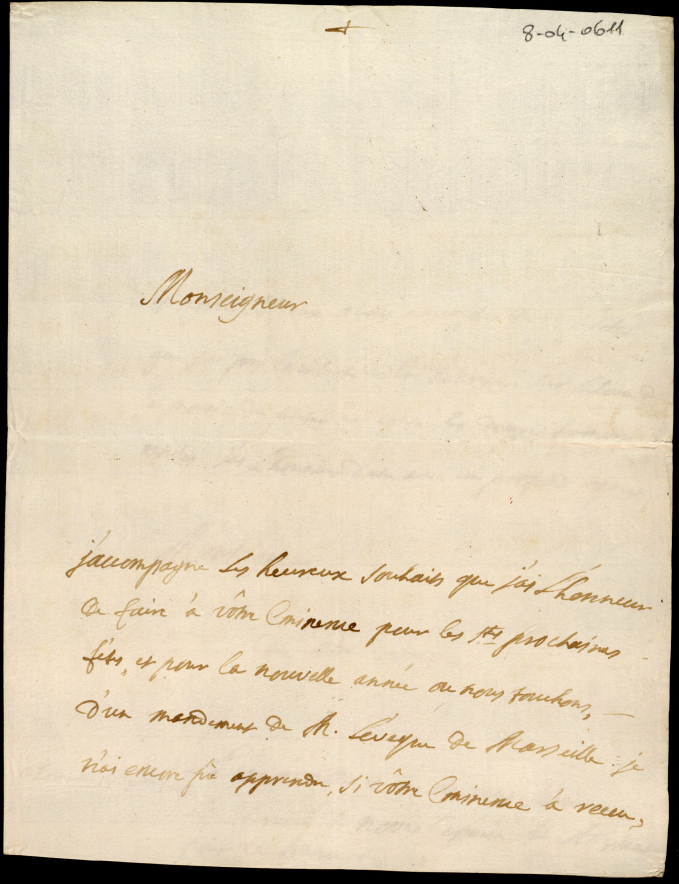 8-04-0611
Monseigneur
j'accompagne les heureux souhaits que j'ai l'honneur
de faire à vôtre Eminence pour les stes prochaines
fêtes, et pour la nouvelle année ou nous touchons,
d'un mandement de M. Leveque de Marseille. je
n'ai encore pû apprendre, si vôtre Eminence à receu,